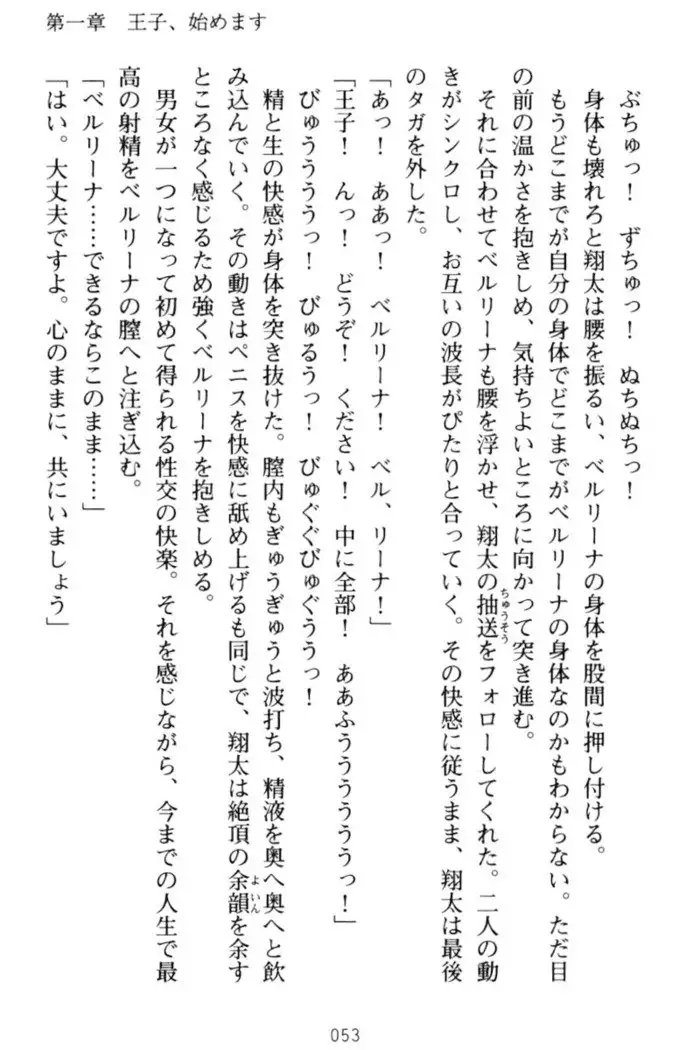 第一章　王子、始めます
ぶちゅっ！　ずちゅっ！　ぬちぬちっ！
身体も壊れろと翔太は腰を振るい、ベルリーナの身体を股間に押し付ける。
もうどこまでが自分の身体でどこまでがベルリーナの身体なのかもわからない。ただ目
の前の温かさを抱きしめ、気持ちよいところに向かって突き進む。
それに合わせてベルリーナも腰を浮かせ、翔太の抽送をフォローしてくれた。二人の動
ちゅうそう
きがシンクロし、お互いの波長がぴたりと合っていく。その快感に従うまま、翔太は最後
のタガを外した。
「あっ！　ああっ！　ベルリーナ！　ベル、リーナ！」
「王子！　んっ！　どうぞ！　ください！　中に全部！　ああふうううううっ！」
びゅうううっ！　びゅるうっ！　びゅぐぐびゅぐううっ！
精と生の快感が身体を突き抜けた。膣内もぎゅうぎゅうと波打ち、精液を奥へ奥へと飲
み込んでいく。その動きはペニスを快感に舐め上げるも同じで、翔太は絶頂の余韻を余す
よいん
ところなく感じるため強くベルリーナを抱きしめる。
男女が一つになって初めて得られる性交の快楽。それを感じながら、今までの人生で最
高の射精をベルリーナの膣へと注ぎ込む。
「ベルリーナ……できるならこのまま……」
「はい。大丈夫ですよ。心のままに、共にいましょう」
053